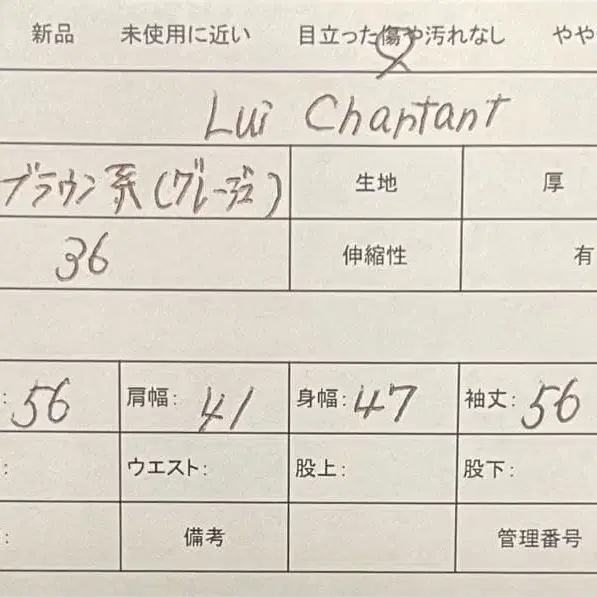 新品 未使用に近い 目立った傷や汚れなし やや
Lui Chantant
ブラウン系(グレージュ) 生地 厚
36 伸縮性 有
: 56 肩幅: 41 身幅: 47 袖丈: 56
: ウエスト: 股上: 股下:
: 備考 管理番号